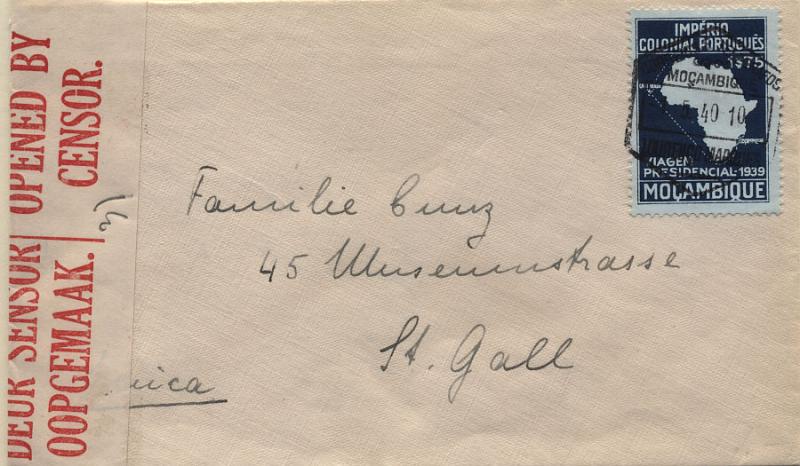 OPENED BY
CENSOR.
DEUR SENSOR
OOPGEMAAK.
IMPÉRIO
COLONIAL PORTUGUÊS
1$75
MOÇAMBIQUE
40 10
VIAGEM
PRESIDENCIAL-1939
MOÇAMBIQUE
Familie Cunz
45 Museumstrasse
St. Gall